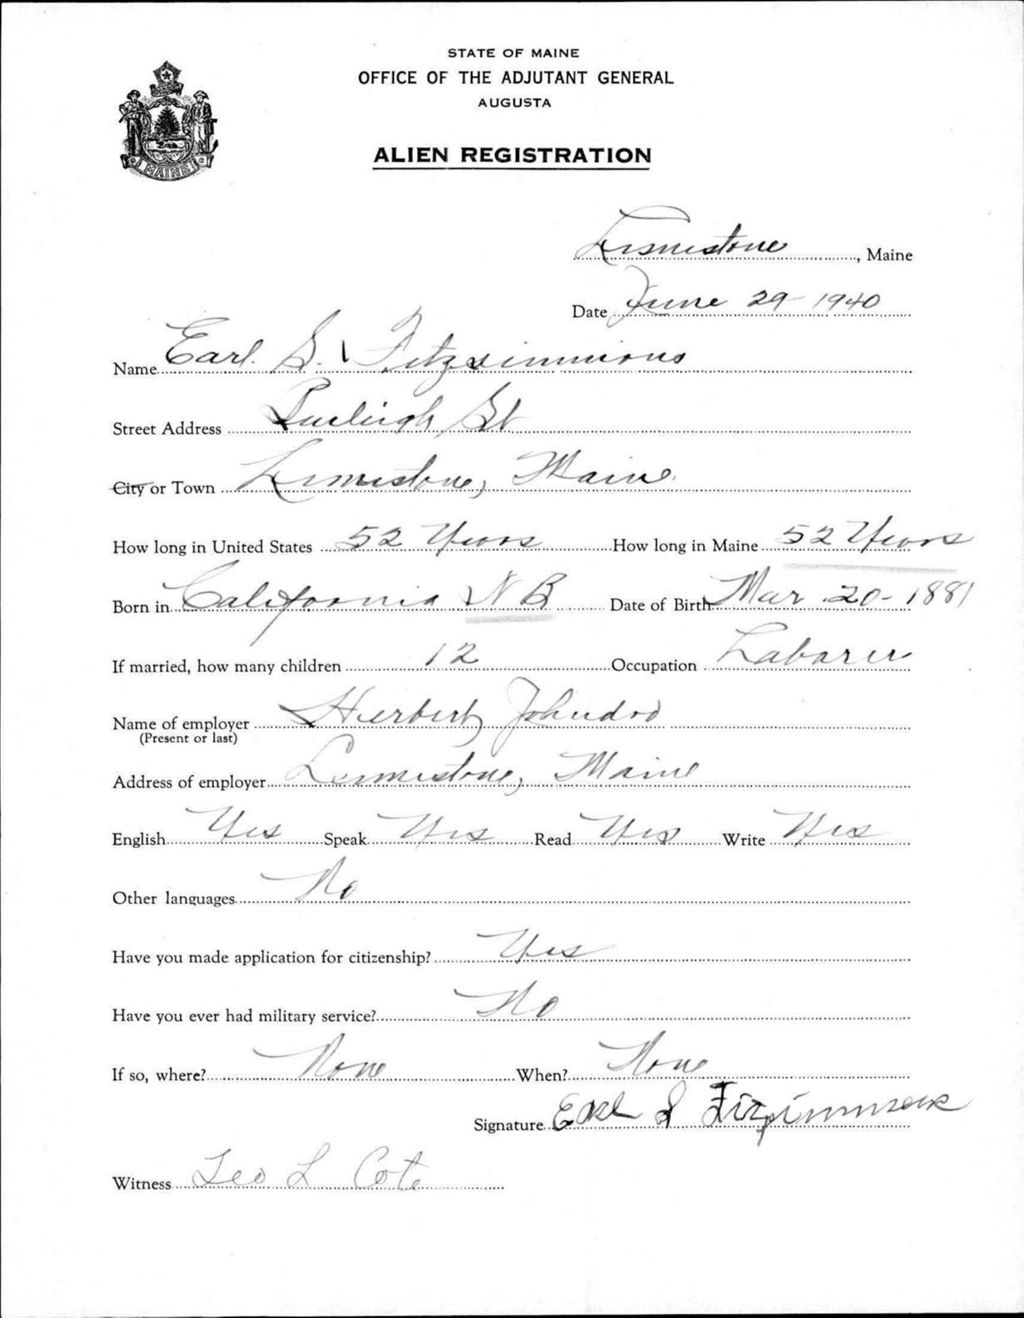 STATE OF MAINE
OFFICE OF THE ADJUTANT GENERAL
AUGUSTA
MAINE
ALIEN REGISTRATION
Limestone, Maine
Date June 29 - 1940
Name Earl S. Fitzsimmions
Street Address St
City or Town Limestone, Maine
How long in United States 52 Years How long in Maine 52 Years
Born in California N B Date of Birth Mar 20 - 1881
If married, how many children 12 Occupation Laborer
Name of employer Herbert
(Present or last)
Address of employer Limestone, Maine
English Yes Speak Yes Read Yes Write Yes
Other languages No
Have you made application for citizenship? Yes
Have you ever had military service? No
If so, where? None When? None
Signature Earl S
Witness Leo L Cote